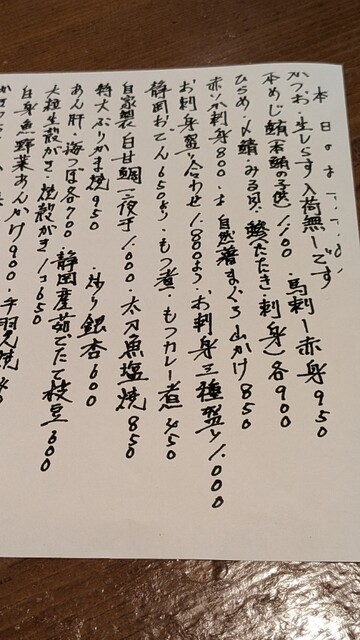 本日のは
かつお・生しらす入荷無しです 馬刺し赤身950
本めじ鮪(本鮪の子供)1,100
ひらめ・〆鯖・みる貝・鯵(たたき・刺身)各900
赤いか刺身800 自然薯まぐろ山かけ850
お刺身盛り合わせ1,800より・お刺身三種盛り1,000
静岡おでん650より・もつ煮・もつカレー煮450
自家製白甘鯛一夜干1,000・太刀魚塩焼850
特大ぶりかま焼950 炒り銀杏600
あん肝・海つぼ各700・静岡産茹でたて枝豆600
大粒生殻がき・焼殻がき1コ650
白身魚野菜あんかけ900・手羽先焼